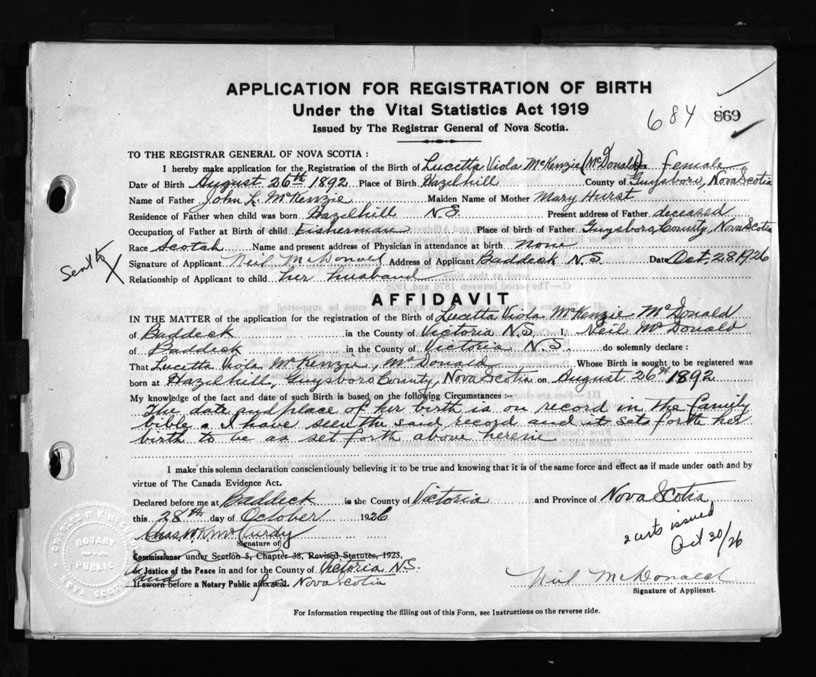 APPLICATION FOR REGISTRATION OF BIRTH
Under the Vital Statistics Act 1919
684 869
Issued by The Registrar General of Nova Scotia.
TO THE REGISTRAR GENERAL OF NOVA SCOTIA :
I hereby make application for the Registration of the Birth of Lucetta Viola McKenzie (McDonald) female
Date of Birth August 26th 1892 Place of Birth Hazelhill County of Guysboro, Nova Scotia
Name of Father John L. McKenzie Maiden Name of Mother Mary Hurst
Residence of Father when child was born Hazelhill N.S. Present address of Father deceased
Occupation of Father at Birth of child Fisherman Place of birth of Father Guysboro, County, Nova Scotia
Race Scotch Name and present address of Physician in attendance at birth none
Signature of Applicant Neil McDonald Address of Applicant Baddeck N.S. Date Oct, 28, 1926
Sent to X
Relationship of Applicant to child her husband
AFFIDAVIT
IN THE MATTER of the application for the registration of the Birth of Lucetta Viola McKenzie McDonald
of Baddeck in the County of Victoria N.S. I, Neil McDonald
of Baddeck in the County of Victoria N.S. do solemnly declare :
That Lucetta Viola McKenzie, McDonald Whose Birth is sought to be registered was
born at Hazelhill, Guysboro County, Nova Scotia on August 26th 1892
My knowledge of the fact and date of such Birth is based on the following Circumstances :-
The date and place of her birth is on record in the family
bible & I have seen the said record and it sets forth her
birth to be as set forth above herein
I make this solemn declaration conscientiously believing it to be true and knowing that it is of the same force and effect as if made under oath and by
virtue of The Canada Evidence Act.
Declared before me at Baddeck in the County of Victoria and Province of Nova Scotia
this 28th day of October 1926
2 certs issued
Oct 30/26
Chas McCurdy
Signature of
Commissioner under Section 5, Chapter 38, Revised Statutes, 1923,
or Justice of the Peace in and for the County of Victoria N.S.
If sworn before a Notary Public affix seal. Nova Scotia
NOTARY PUBLIC
Neil McDonald
Signature of Applicant.
For Information respecting the filling out of this Form, see Instructions on the reverse side.